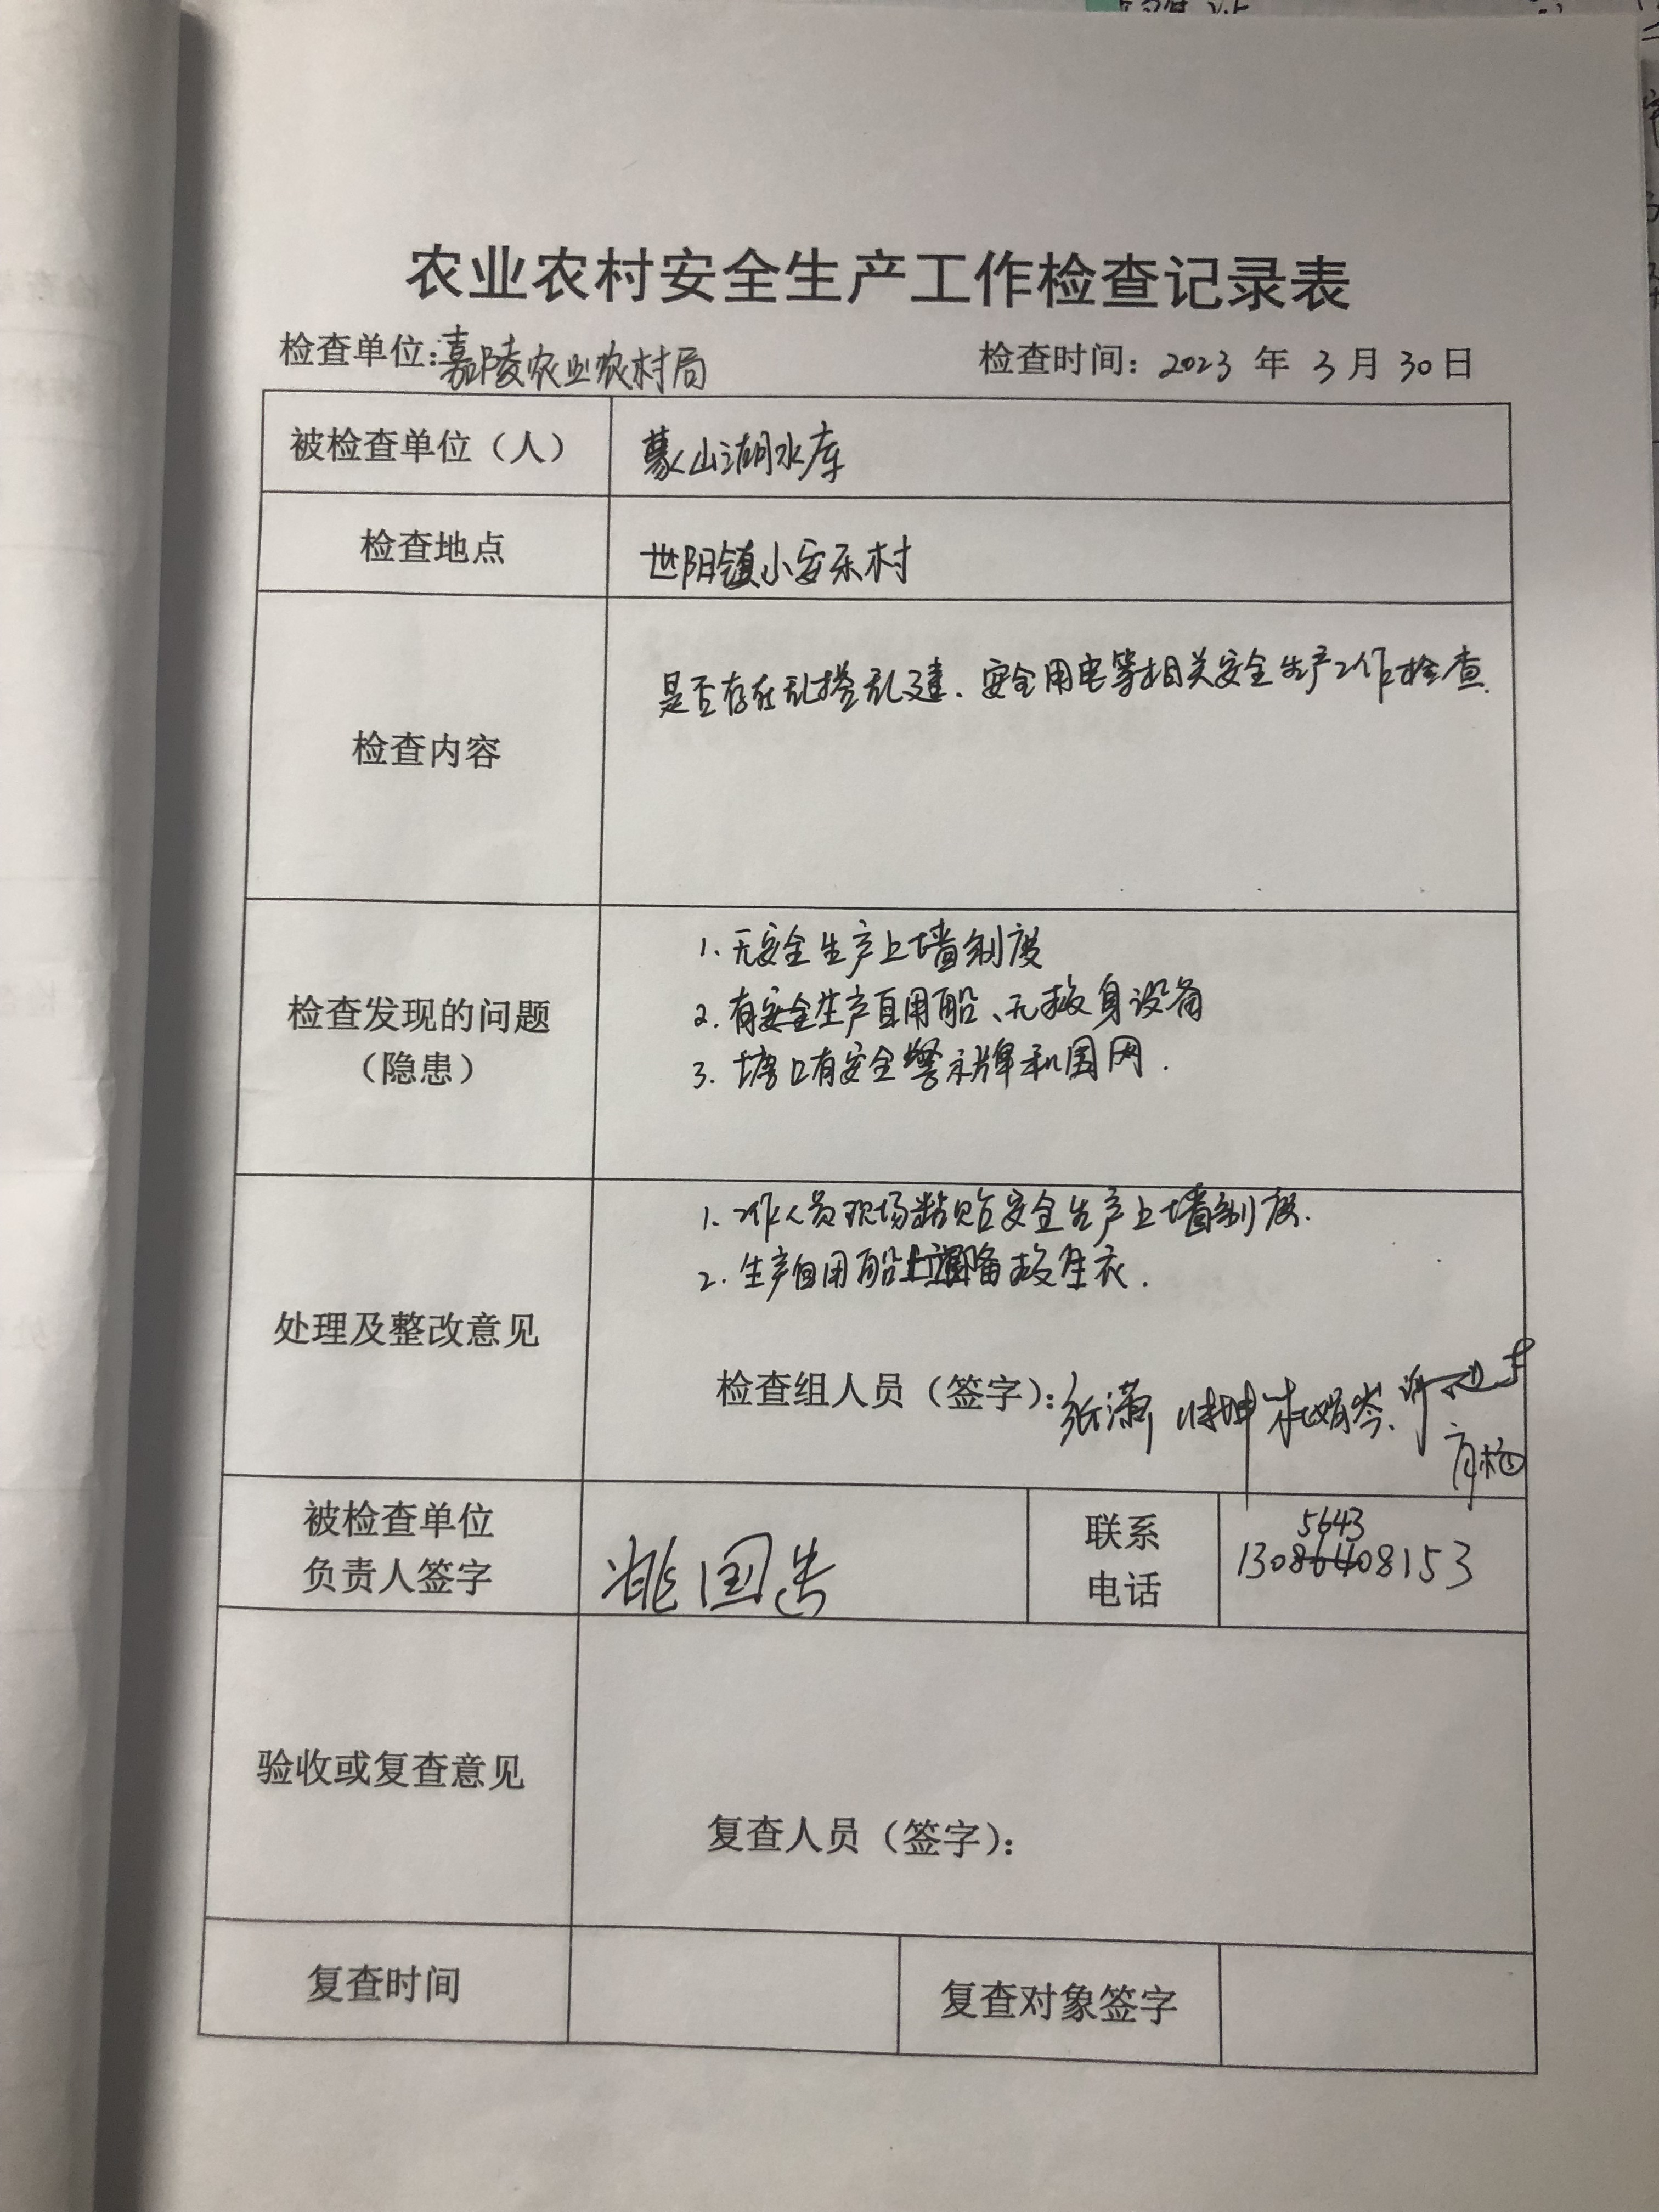 农业农村安全生产工作检查记录表
检查单位：嘉陵农业农村局 检查时间：2023 年 3 月 30 日
被检查单位（人） 山湖水库
检查地点 世阳镇小安乐村
检查内容 是否存在乱搭乱建、安全用电等相关安全生产工作检查.
检查发现的问题
（隐患）
1. 无安全生产上墙制度
2. 有安全生产自用船、无救身设备
3. 塘口有安全警示牌和围网.
处理及整改意见
1. 工作人员现场粘贴安全生产上墙制度.
2. 生产自用船 备救生衣.
检查组人员（签字）：张潇 杜娟岑.
被检查单位
负责人签字
姚国告
联系
电话
5643
13086408153
验收或复查意见
复查人员（签字）：
复查时间 复查对象签字